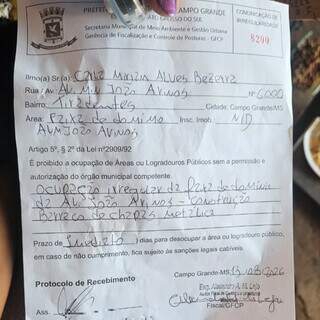 PREFEITURA CAMPO GRANDE
MATO GROSSO DO SUL
Secretaria Municipal de Meio Ambiente e Gestão Urbana
Gerência de Fiscalização e Controle de Posturas - GFCP
COMUNICAÇÃO DE IRREGULARIDADE
8200
Ilmo(a) Sr(a) Alves Bezerra
Rua / Av João Arinos Nº 6000
Bairro: Tiradentes Cidade: Campo Grande-MS
Área: Faixa de domínio Insc. Imob. N/D
João Arinos
Artigo 5º, § 2º da Lei nº2909/92
É proibido a ocupação de Áreas ou Logradouros Públicos sem a permissão e
autorização do órgão municipal competente.
Ocupação irregular da Faixa de domínio
da João Arinos - construção
Barraco de chapas metálica
Prazo de Imediato ) dias para desocupar a área ou logradouro público,
em caso de não cumprimento, fica sujeito às sanções legais cabíveis.
Campo Grande-MS,
Protocolo de Recebimento
Fiscal/GFCP
Ass.